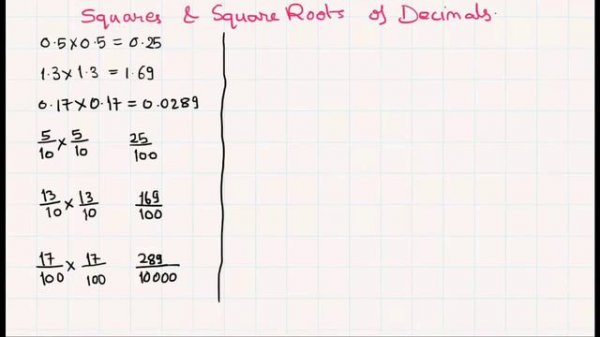 Squares & Square Roots of Decimals.
0.5×0.5 = 0.25
1.3×1.3 = 1.69
0.17×0.17 = 0.0289
5/10 × 5/10 25/100
13/10 × 13/10 169/100
17/100 × 17/100 289/10000